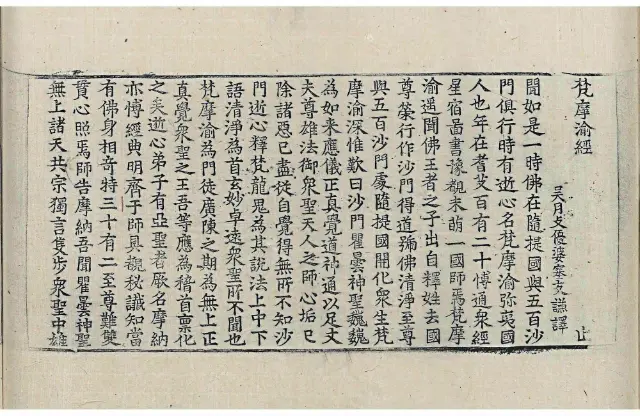 梵摩渝經
吳月支優婆塞支謙譯 止
聞如是一時佛在隨提國與五百沙
門俱行時有逝心名梵摩渝彌夷國
人也年在耆艾百有二十博通衆經
星宿啚書豫覩未萌一國師焉梵摩
渝遥聞佛王者之子出自釋姓去國
尊榮行作沙門得道號佛清淨至尊
與五百沙門處隨提國開化衆生梵
摩渝深惟歎曰沙門瞿曇神聖巍巍
為如来應儀正真覺道神通以足丈
夫尊雄法御衆聖天人之師心垢已
除諸惡已盡從自覺得無所不知沙
門逝心釋梵龍鬼為其説法上中下
語清淨為首玄妙卓遠衆聖所不聞也
梵摩渝為門徒廣陳之期為無上正
真覺衆聖之王吾等應為稽首禀化
之矣逝心弟子有亞聖者厥名摩納
亦博經典明齊于師具覩秘讖知當
有佛身相奇特三十有二至尊難雙
貫心照焉師告摩納吾聞瞿曇神聖
無上諸天共宗獨言隻步衆聖中雄